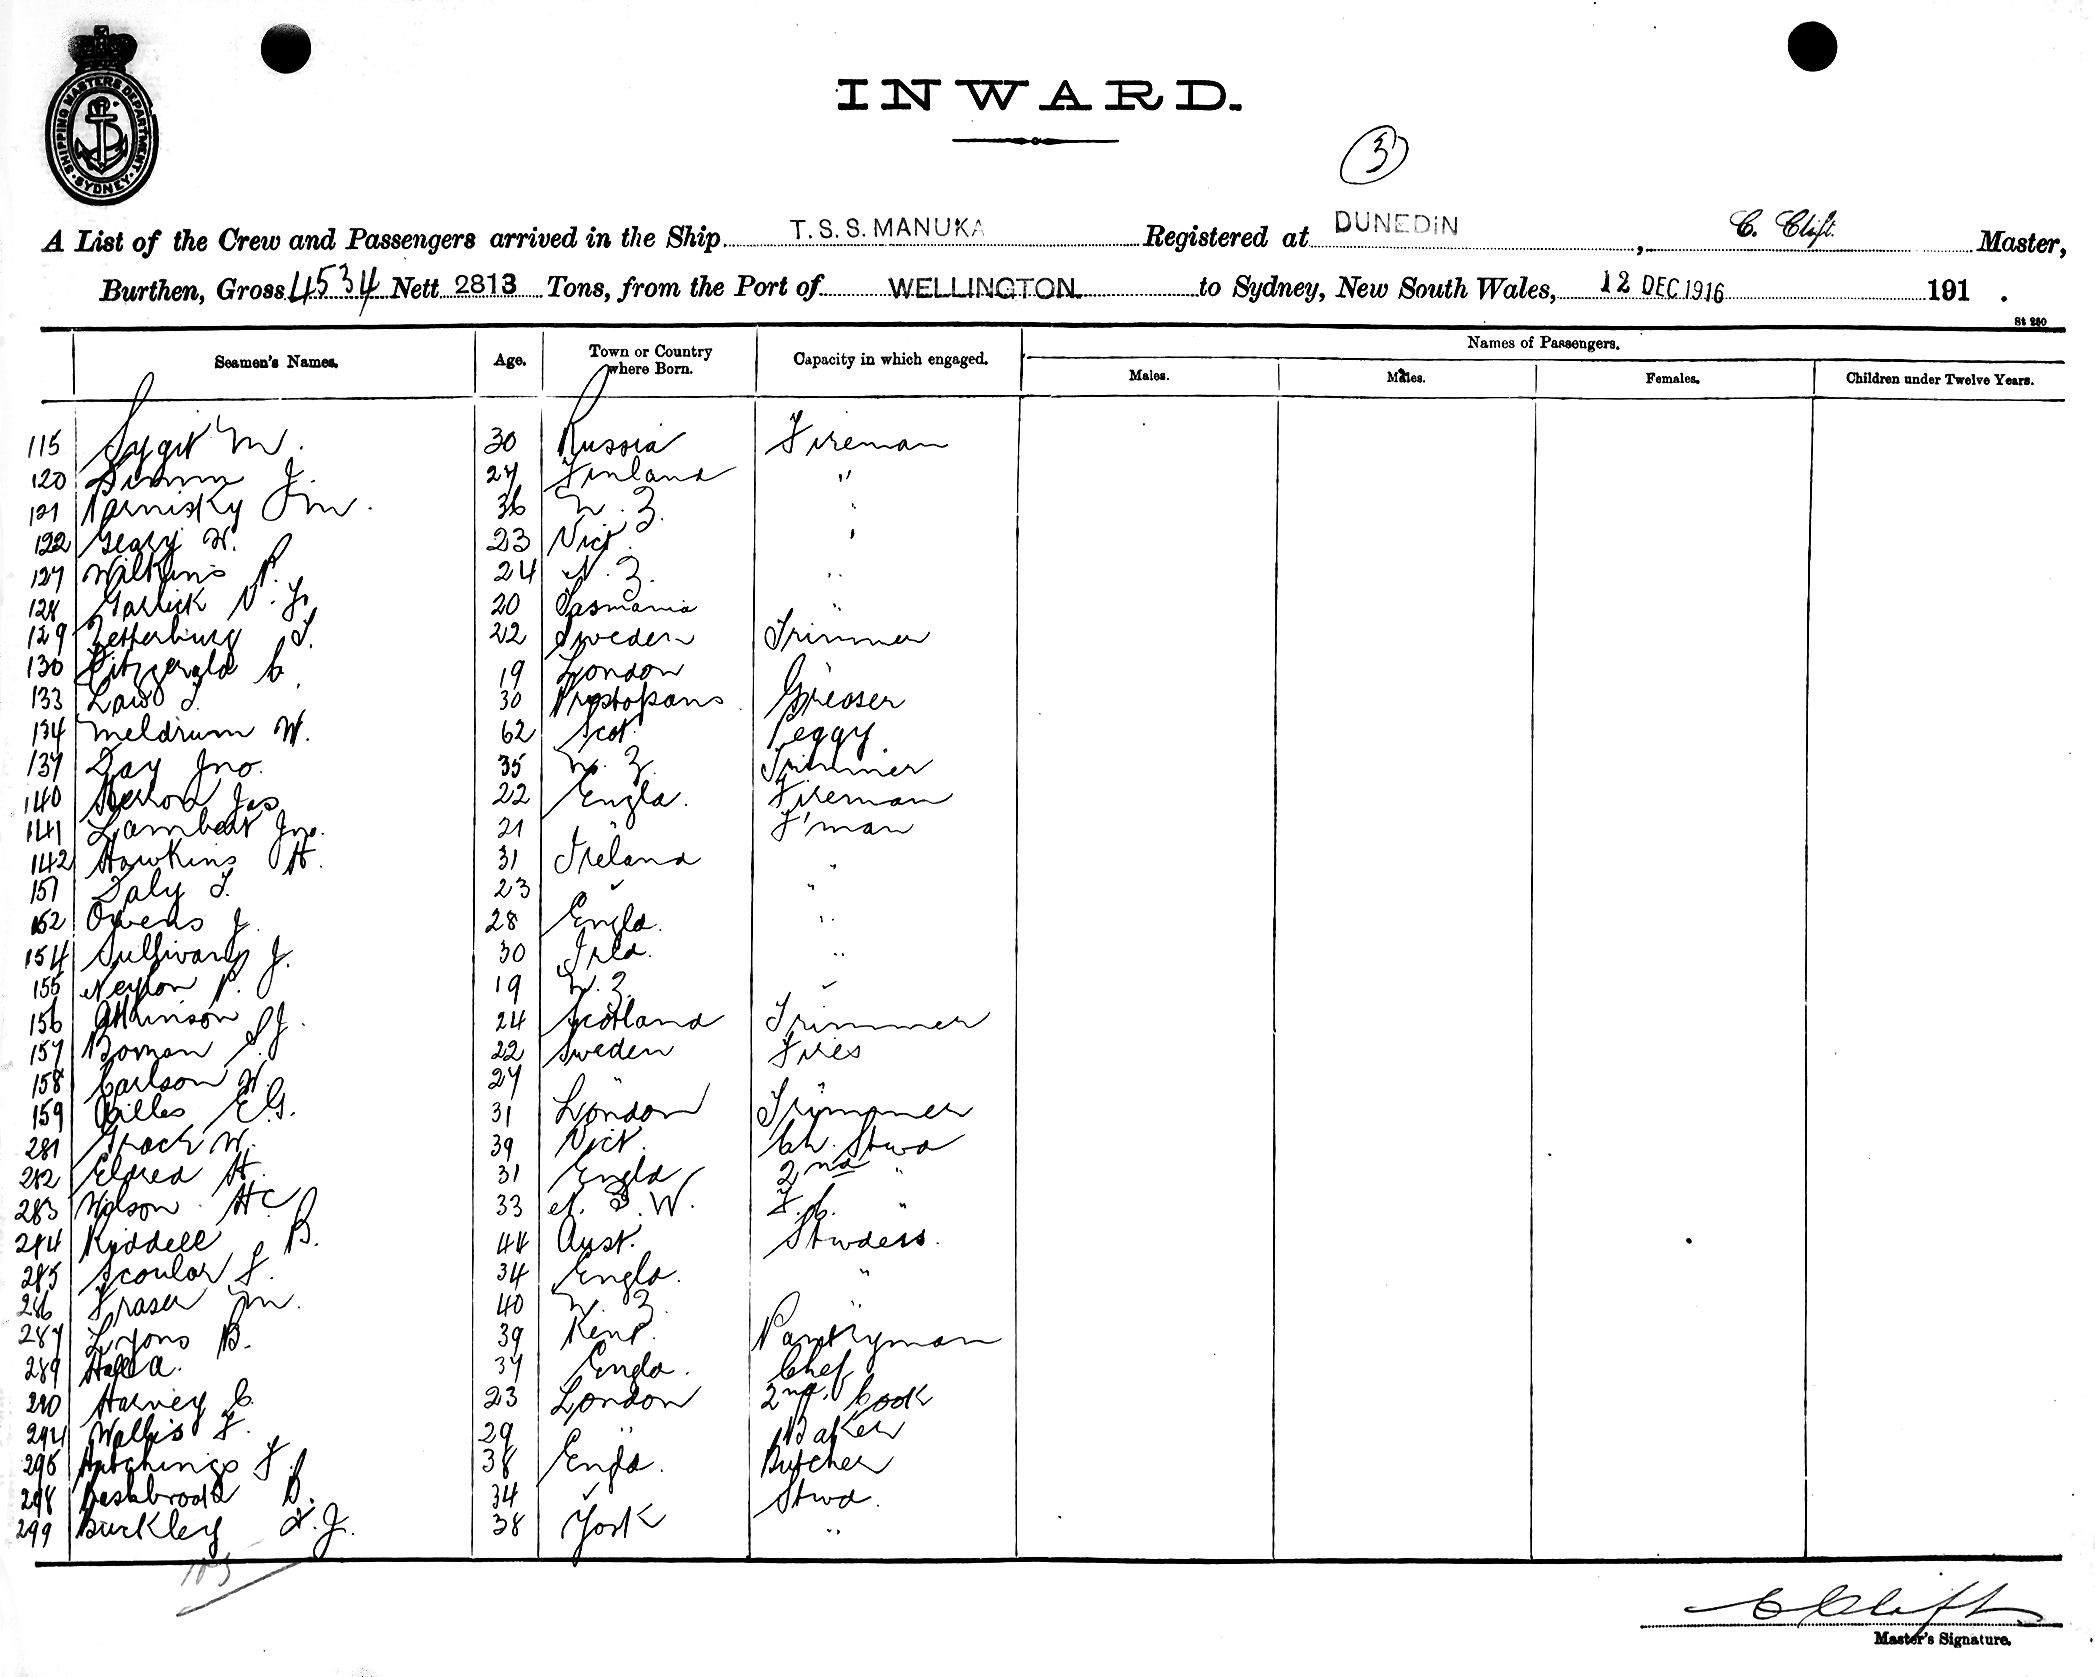 SHIPPING MASTERS DEPARTMENT · SYDNEY ·
INWARD.
3
A List of the Crew and Passengers arrived in the Ship T.S.S. MANUKA Registered at DUNEDIN, C. Clift Master,
Burthen, Gross 4534 Nett 2813 Tons, from the Port of WELLINGTON to Sydney, New South Wales, 12 DEC 1916 191 .
St 280
Seamen's Names. Age. Town or Country where Born. Capacity in which engaged. Names of Passengers.
Males. Males. Females. Children under Twelve Years.
115 Sygit M. 30 Russia Fireman
120 J. 27 Finland "
121 Varnisky J m. 36 N. Z. "
122 Geary W. 23 Vict "
127 Wilkins P. 24 N. Z. "
128 Garlick V. 20 Tasmania "
129 Zetterburg T. 22 Sweden Trimmer
130 Fitzgerald C. 19 London "
133 Laws T. 30 Prestopans Greaser
134 Meldrum W. 62 Scot. Peggy.
137 Day Jno. 35 N. Z. Trimmer
140 Jas 22 Engld. Fireman
141 Lambert Jno. 21 " F'man
142 Hawkins H. 31 Ireland "
151 Daly T. 23 " "
152 Owens J. 28 Engld. "
154 Sullivan J. 30 Irld. "
155 Neylon P. 19 N. Z. "
156 Atkinson J. 24 Scotland Trimmer
157 Boman S. 22 Sweden Fires
158 Carlson W. 27 " "
159 Gilles E G. 31 London Trimmer
281 W. 39 Vict. Ch. Stwd
282 Eldred H. 31 Engld 2nd "
283 Wilson H C 33 N. S. W. F. C. "
284 Riddell B. 44 Aust. Stwdess.
285 Scoular J. 34 Engld. "
286 Fraser M. 40 N. Z. "
287 Lyons B. 39 Kent. Pantryman
289 Hall A. 37 Engld. Chef
290 Harvey C. 23 London 2nd. Cook
294 Wallis F. 29 " Baker
295 Hutchings F. 38 Engd. Butcher
298 Peshbrook B. 34 " Stwd.
299 Buckley J. 38 York "
105
C Clift
Master's Signature.